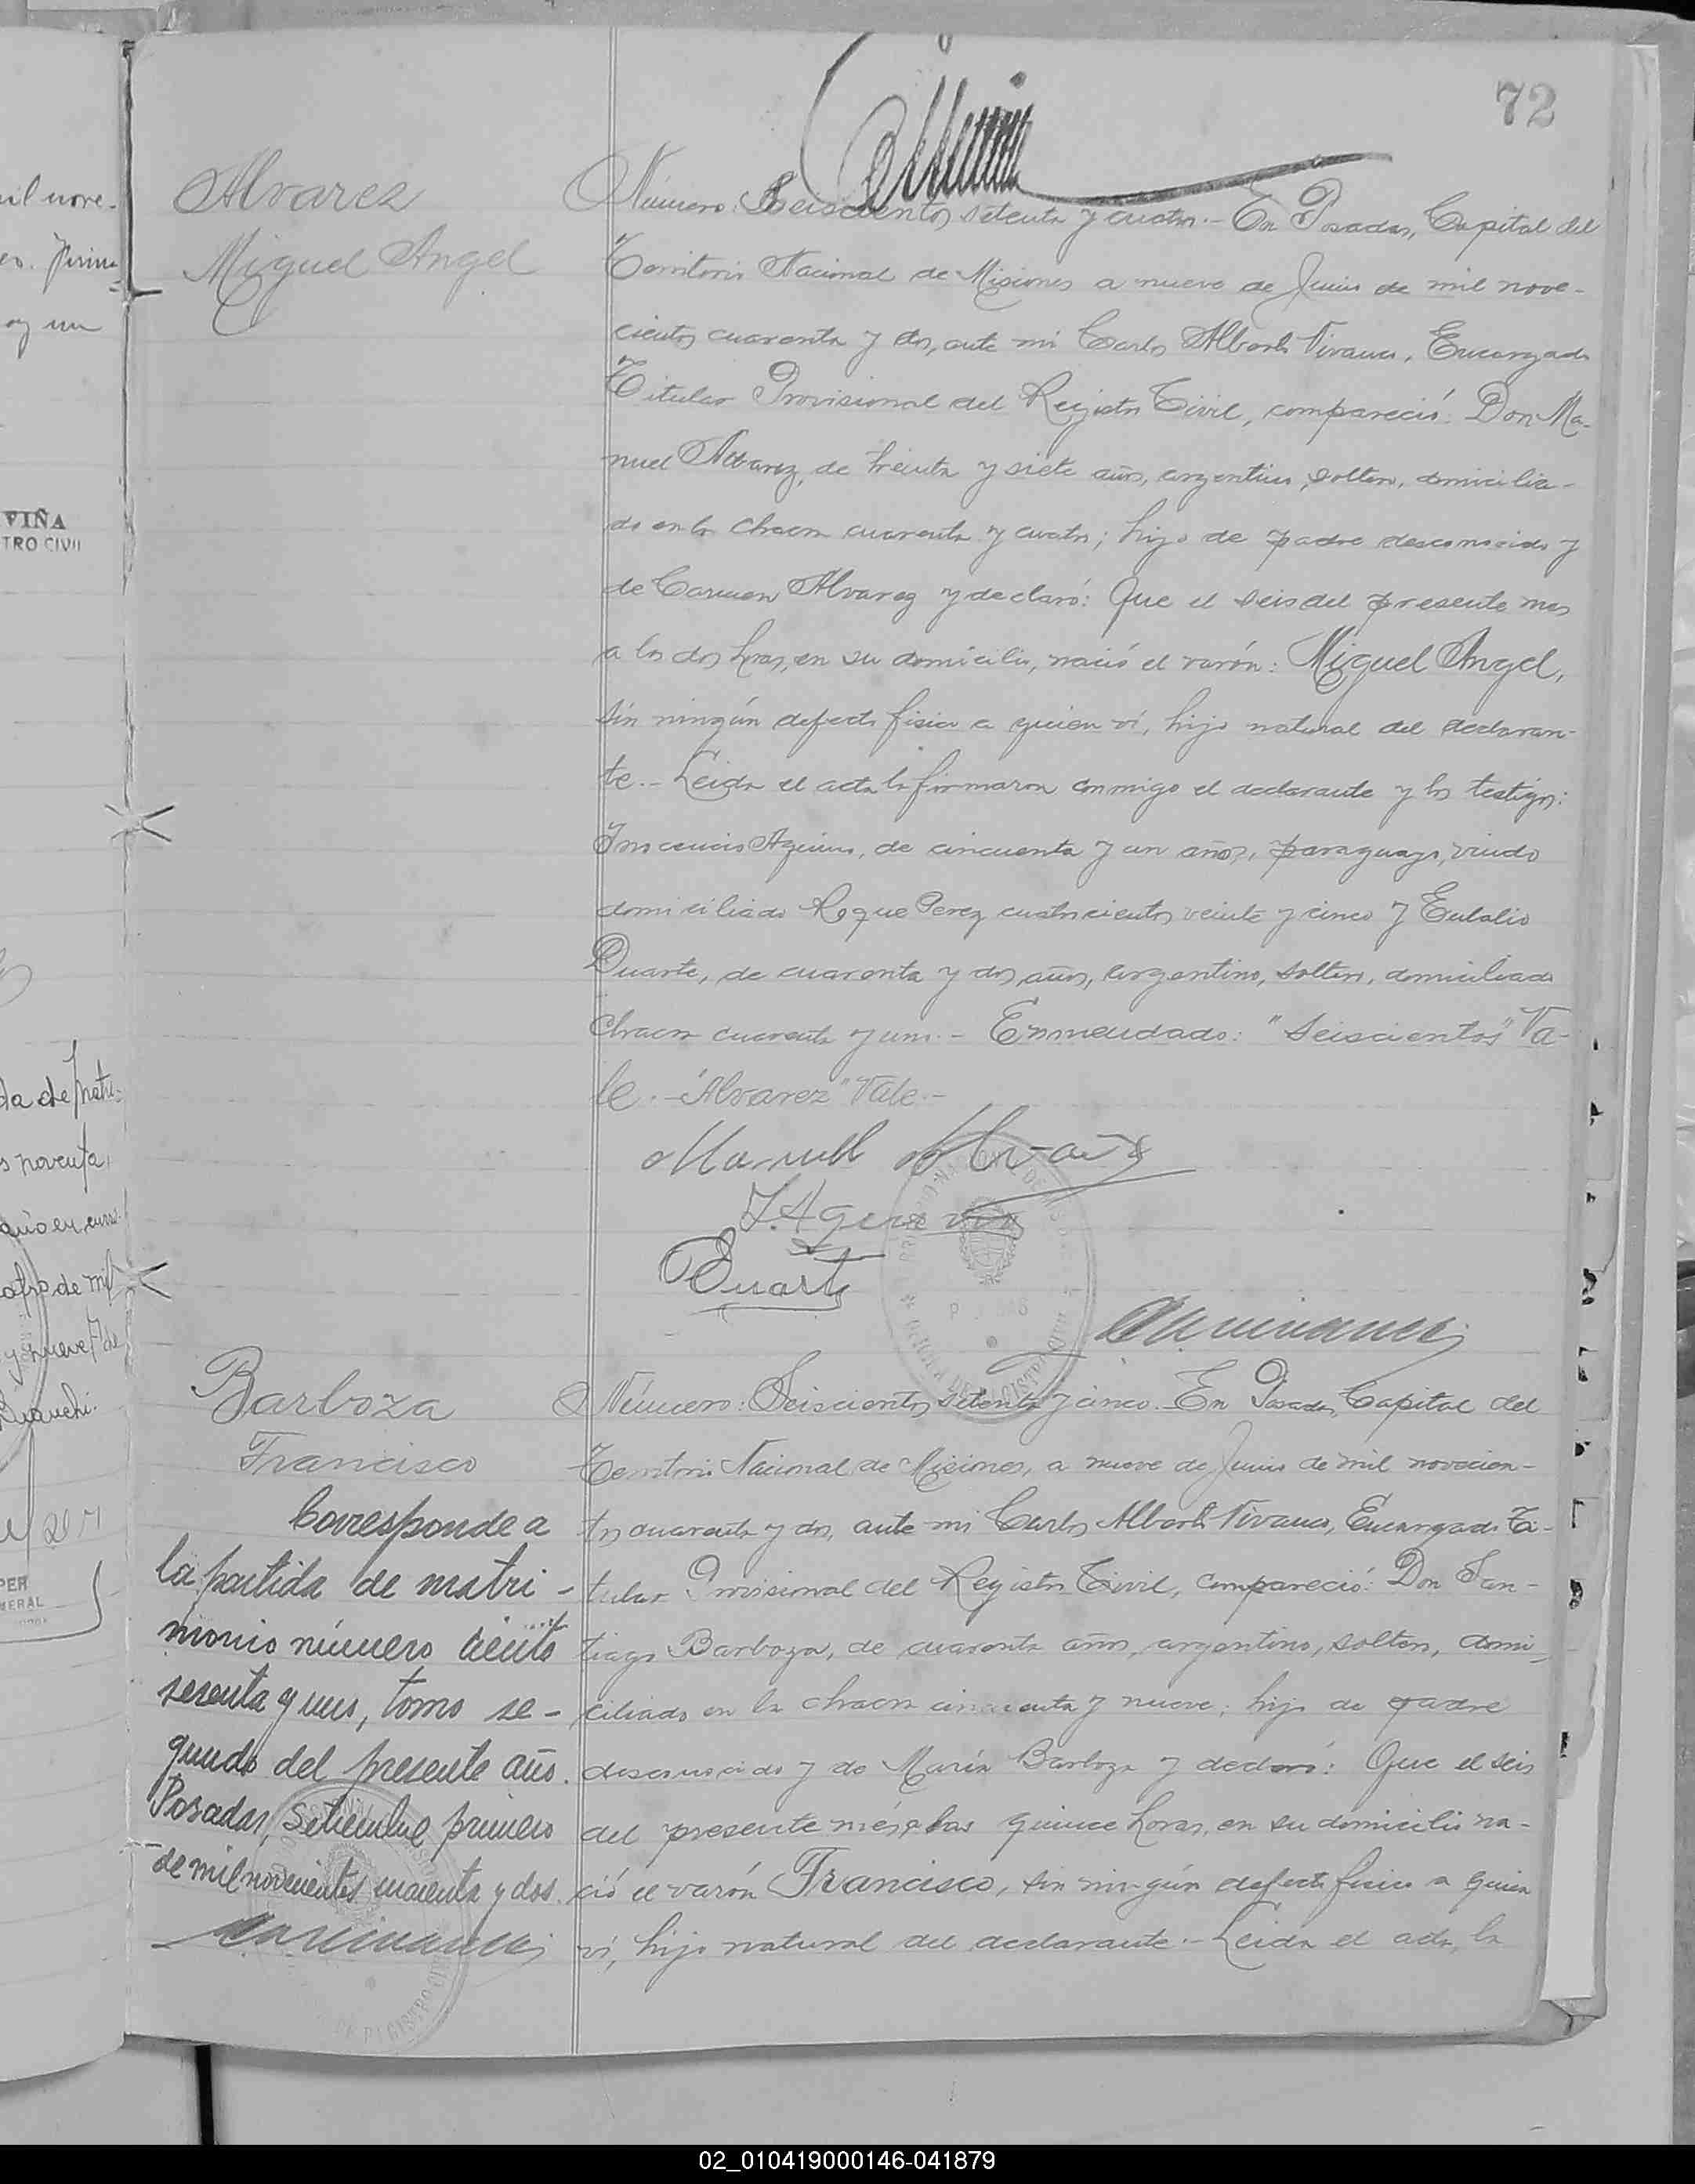 72
Alvarez
Miguel Angel
Número: Seiscientos setenta y cuatro.- En Posadas, Capital del
Territorio Nacional de Misiones a nueve de Junio de mil nove-
cientos cuarenta y dos, ante mi Carlos Alberto Vivanco, Encargado
Titular Provisional del Registro Civil, compareció: Don Ma-
nuel Alvarez, de treinta y siete años, argentino, soltero, domicilia-
do en la chacra cuarenta y cuatro; hijo de padre desconocido y
de Carmen Alvarez y declaró: Que el seis del presente mes
a las dos horas, en su domicilio, nació el varón: Miguel Angel,
sin ningún defecto fisico a quien ví, hijo natural del declaran-
te.- Leida el acta la firmaron conmigo el declarante y los testigos:
Inocencio Aguirre, de cincuenta y un años, paraguayo, viudo
domiciliado Roque Perez cuatrocientos veinte y cinco y Eulalio
Duarte, de cuarenta y dos años, argentino, soltero, domiciliado
Chacra cuarenta y uno.- Enmendado: "Seiscientos" Va-
le.- "Alvarez" Vale.-
Manuel Alvarez
EDuarte
Barboza
Francisco
Número: Seiscientos setenta y cinco. En Posadas, Capital del
Territorio Nacional de Misiones, a nueve de Junio de mil novecien-
tos cuarenta y dos, ante mi Carlos Alberto Vivanco, Encargado Ti-
tular Provisional del Registro Civil, compareció: Don San-
tiago Barboza, de cuarenta años, argentino, soltero, domi-
ciliado en la chacra cincuenta y nueve; hijo de padre
desconocido y de María Barboza y declaró: Que el seis
del presente més, a las quince horas, en su domicilio na-
ció el varón Francisco, sin ningún defecto fisico a quien
ví, hijo natural del declarante.- Leida el acta, la
Corresponde a
la partida de matri-
monio número ciento
sesenta y uno, tomo se-
gundo del presente año.
Posadas, Setiembre primero
de mil novecientos cuarenta y dos.
02_010419000146-041879